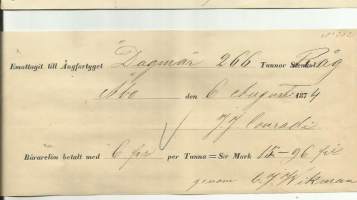 Emottagit till Ångfartyget "Dagmar" 266 Tunnor Råg
Åbo den 6 August 1874
J J Conradi
Bärarelön betalt med 6 pi per Tunna = Smr Mark 15-96 pi
genom C. J. Wikman